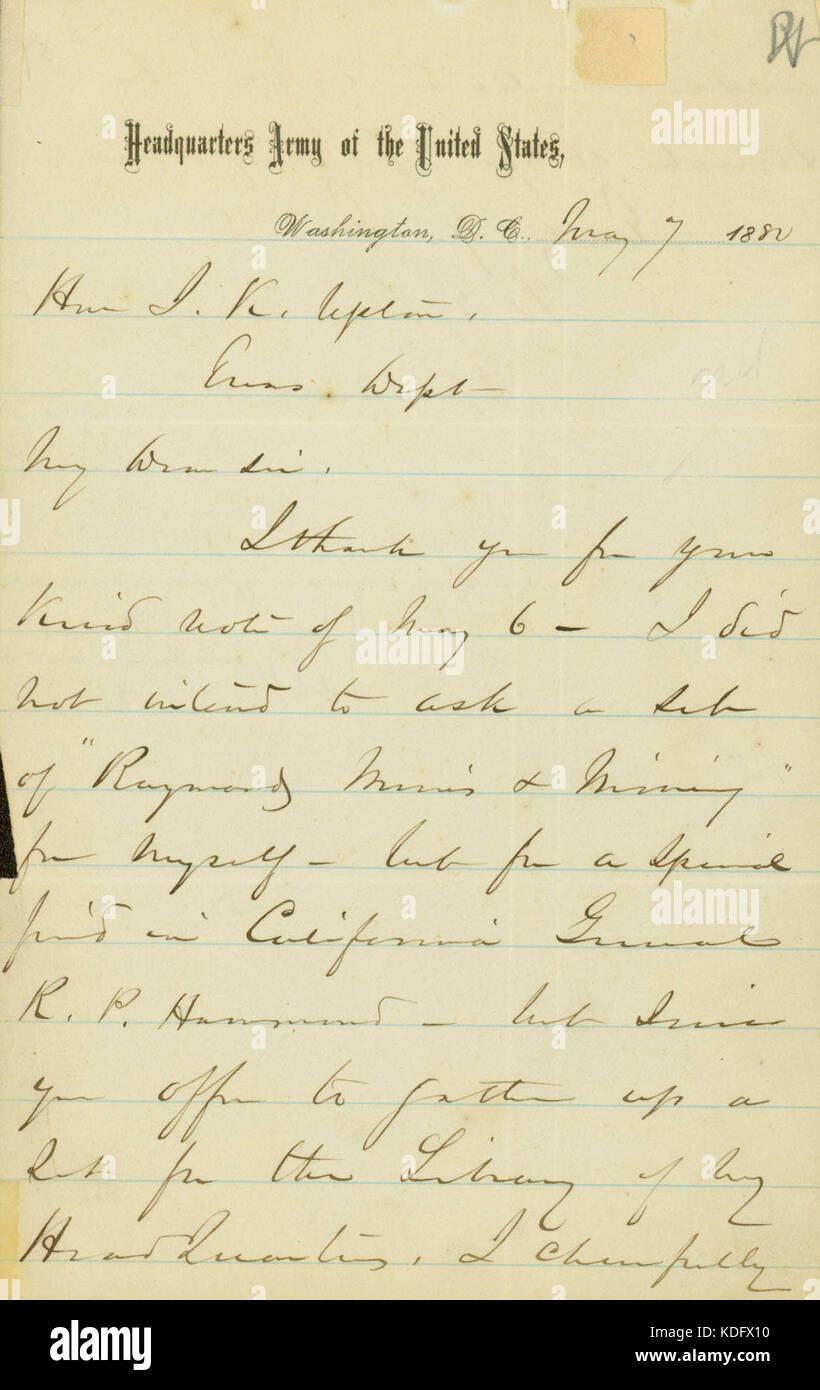 Headquarters Army of the United States,
Washington, D. C. May 7 1880
Hon J. K. Upton,
Treas. Dept
My Dear Sir.
I thank you for your
kind note of May 6 – I did
not intend to ask a set
of "Raymonds Mines & Mining"
for myself – but for a special
frind in California General
R. P. Hammond – but since
you offer to gather up a
set for the Library of my
HeadQuarters, I cheerfully
alamy
Image ID: KDFX10
www.alamy.com